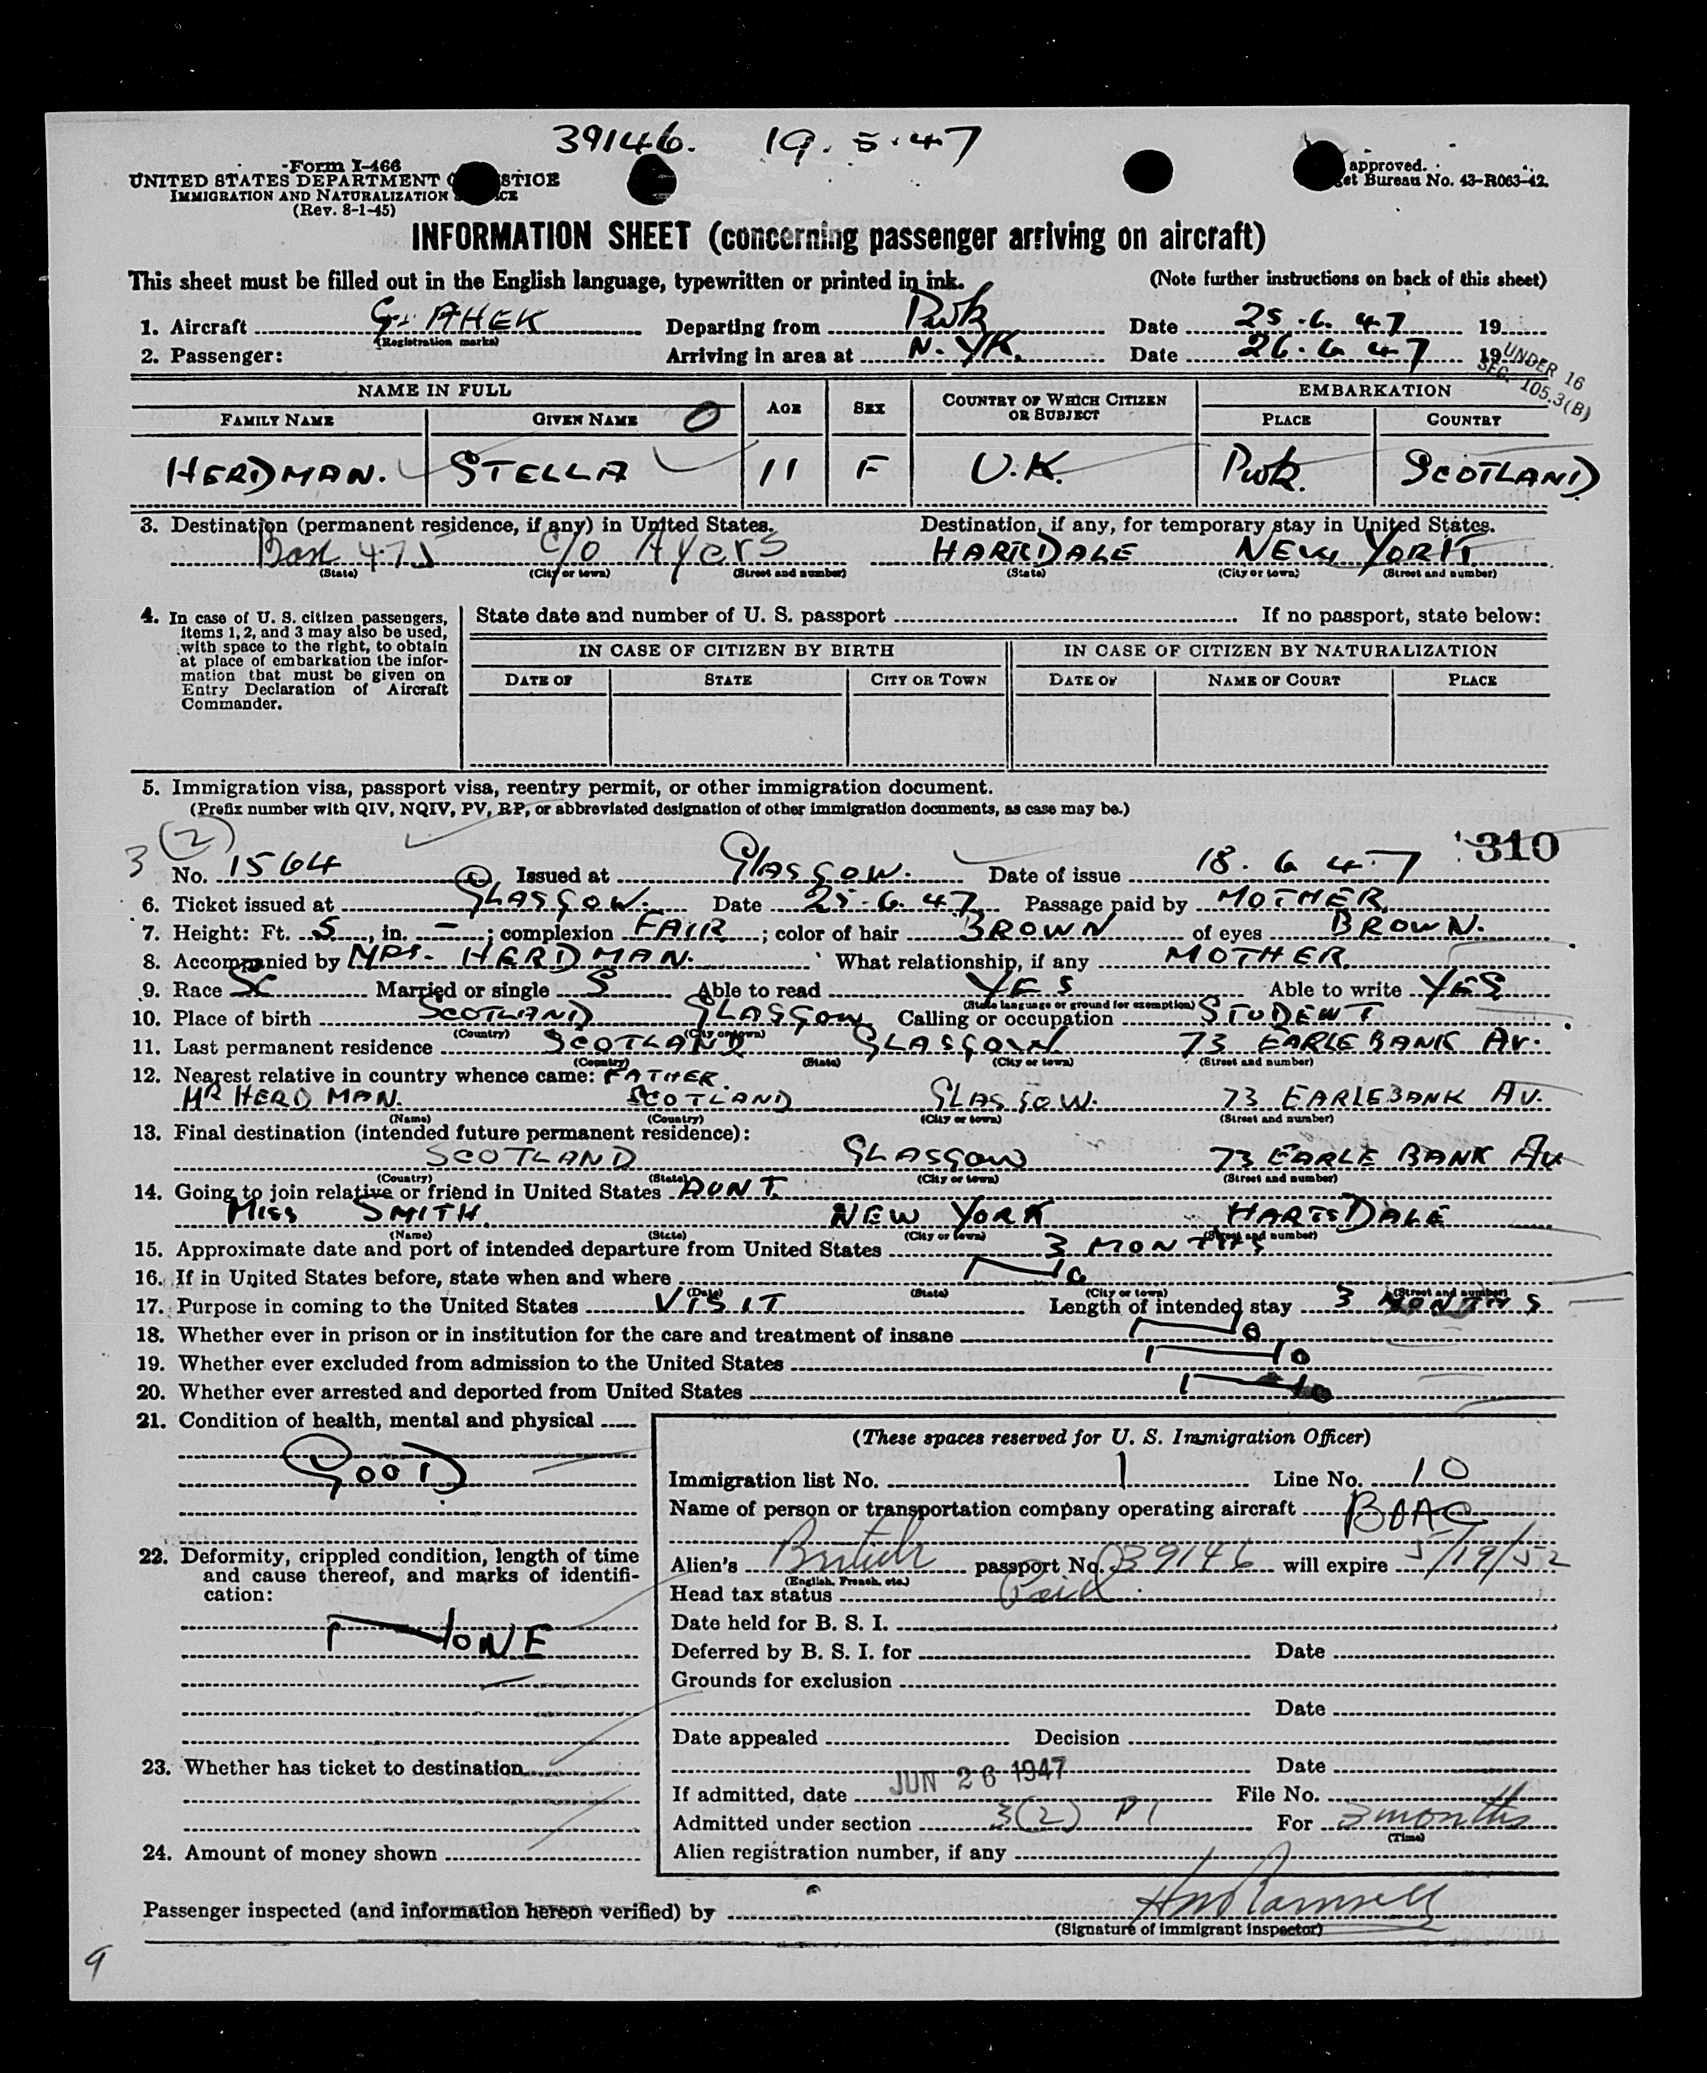 39146. 19.5.47
Form I-466
UNITED STATES DEPARTMENT STICE
IMMIGRATION AND NATURALIZATION CE
(Rev. 8-1-45)
approved.
et Bureau No. 43-R063-42.
INFORMATION SHEET (concerning passenger arriving on aircraft)
This sheet must be filled out in the English language, typewritten or printed in ink. (Note further instructions on back of this sheet)
1. Aircraft G-AHEK Departing from Pwk Date 25.6.47 19
(Registration marks)
2. Passenger: Arriving in area at N.YK. Date 26.6.47 19
UNDER 16
SEC. 105.3(B)
NAME IN FULL AGE SEX COUNTRY OF WHICH CITIZEN OR SUBJECT EMBARKATION
FAMILY NAME GIVEN NAME PLACE COUNTRY
HERDMAN. STELLA 11 F U.K. Pwk. SCOTLAND
3. Destination (permanent residence, if any) in United States. Destination, if any, for temporary stay in United States.
Box 475 c/o Ayers HARTSDALE NEW YORK
(State) (City or town) (Street and number) (State) (City or town) (Street and number)
4. In case of U. S. citizen passengers, items 1, 2, and 3 may also be used, with space to the right, to obtain at place of embarkation the information that must be given on Entry Declaration of Aircraft Commander.
State date and number of U. S. passport If no passport, state below:
IN CASE OF CITIZEN BY BIRTH IN CASE OF CITIZEN BY NATURALIZATION
DATE OF STATE CITY OR TOWN DATE OF NAME OF COURT PLACE
5. Immigration visa, passport visa, reentry permit, or other immigration document.
(Prefix number with QIV, NQIV, PV, RP, or abbreviated designation of other immigration documents, as case may be.)
3 (2) 310
No. 1564 Issued at GLASGOW. Date of issue 18.6.47
6. Ticket issued at GLASGOW. Date 25.6.47 Passage paid by MOTHER
7. Height: Ft. 5, in. –; complexion FAIR; color of hair BROWN of eyes BROWN.
8. Accompanied by MRS. HERDMAN. What relationship, if any MOTHER
9. Race SC Married or single S Able to read YES Able to write YES
(State language or ground for exemption)
10. Place of birth SCOTLAND GLASGOW Calling or occupation STUDENT
(Country) (City or town)
11. Last permanent residence SCOTLAND GLASGOW 73 EARLEBANK AV.
(Country) (State) (City or town) (Street and number)
12. Nearest relative in country whence came: FATHER.
MR HERDMAN. SCOTLAND GLASGOW. 73 EARLEBANK AV.
(Name) (Country) (City or town) (Street and number)
13. Final destination (intended future permanent residence):
SCOTLAND GLASGOW 73 EARLE BANK AV
(Country) (State) (City or town) (Street and number)
14. Going to join relative or friend in United States AUNT.
MISS SMITH. NEW YORK HARTSDALE
(Name) (State) (City or town) (Street and number)
15. Approximate date and port of intended departure from United States 3 MONTHS
16. If in United States before, state when and where No
(Date) (State) (City or town) (Street and number)
17. Purpose in coming to the United States VISIT Length of intended stay 3 MONTHS
18. Whether ever in prison or in institution for the care and treatment of insane No
19. Whether ever excluded from admission to the United States No
20. Whether ever arrested and deported from United States No
21. Condition of health, mental and physical
GOOD
22. Deformity, crippled condition, length of time and cause thereof, and marks of identification:
NONE
23. Whether has ticket to destination
24. Amount of money shown
(These spaces reserved for U. S. Immigration Officer)
Immigration list No. 1 Line No. 10
Name of person or transportation company operating aircraft BOAC
Alien's British passport No. 39146 will expire 5/19/52
(English, French, etc.)
Head tax status Paid
Date held for B. S. I.
Deferred by B. S. I. for Date
Grounds for exclusion
Date
Date appealed Decision
Date
If admitted, date JUN 26 1947 File No.
Admitted under section 3(2) P1 For 3 months
(Time)
Alien registration number, if any
Passenger inspected (and information hereon verified) by
(Signature of immigrant inspector)
9